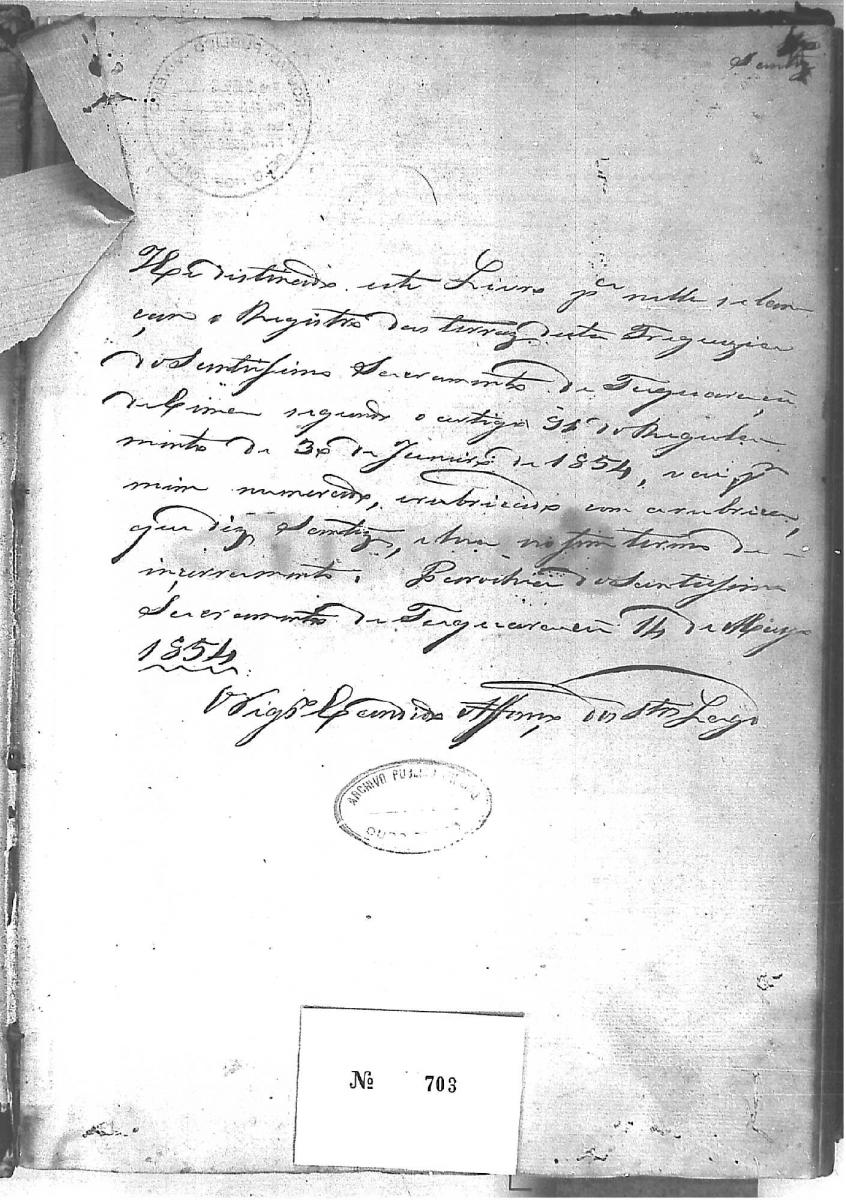 Santos
He distinado este Livro pª nelle se lan
çar o Registro das terras desta Freguezia
do Santissimo Sacramento de Taquaraçú
de Cima segundo o artigo 91 do Regula
mento de 30 de Janeiro de 1854, vai pr
mim numerado, e rubricado com a rubrica,
que diz Santos, e leva no fim termo de
incerramento. Parochia do Santissimo
Sacramento de Taquaraçú 14 de Mayo
1854
O Vigrº Candido Affonço dos Stos Lago
ARCHIVO PUBLICO
OURO PRETO
Nº 703